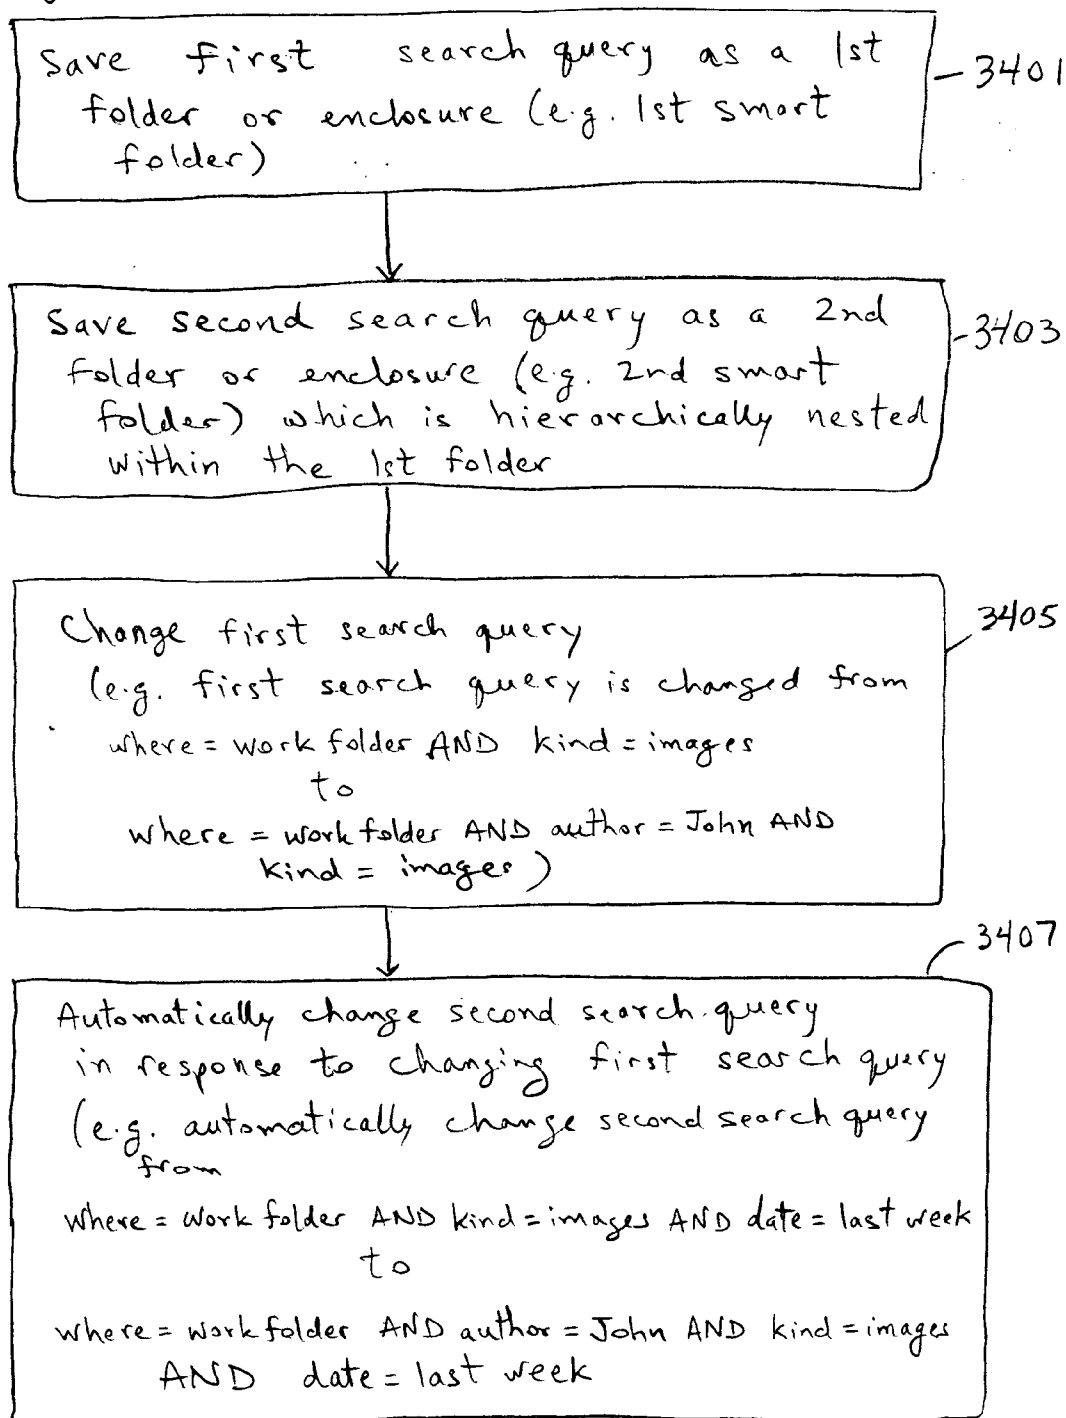 Save first search query as a 1st
folder or enclosure (e.g. 1st smart
folder)
3401
Save second search query as a 2nd
folder or enclosure (e.g. 2nd smart
folder) which is hierarchically nested
within the 1st folder
3403
Change first search query
(e.g. first search query is changed from
where = work folder AND kind = images
to
where = work folder AND author = John AND
kind = images)
3405
3407
Automatically change second search query
in response to changing first search query
(e.g. automatically change second search query
from
where = work folder AND kind = images AND date = last week
to
where = work folder AND author = John AND kind = images
AND date = last week